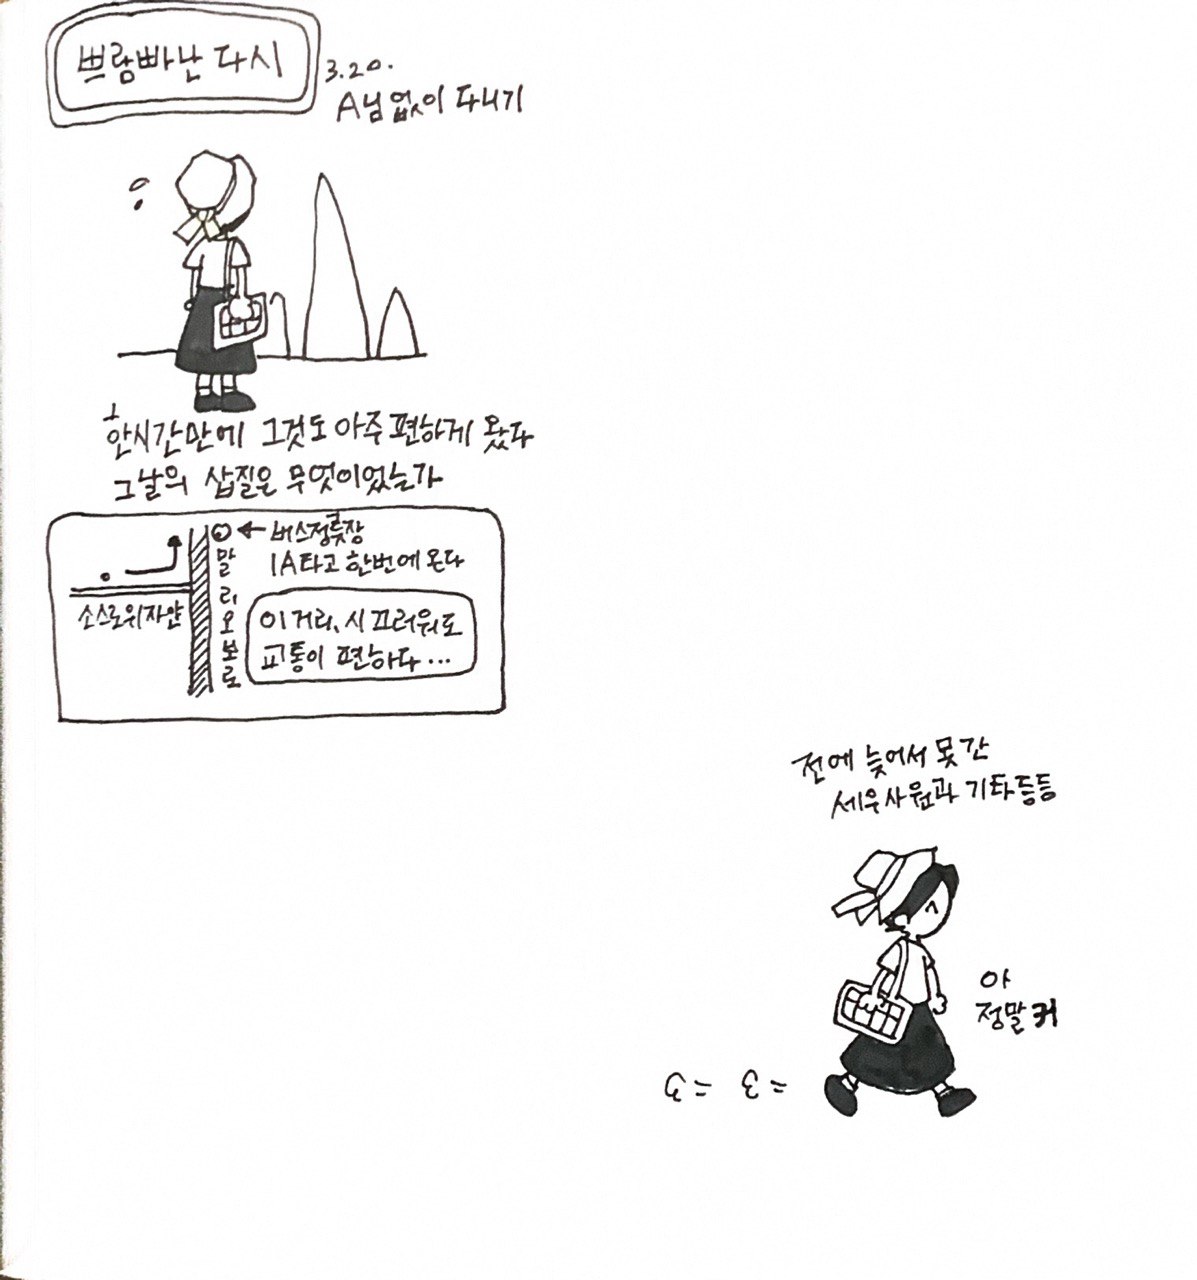 쁘람빠난 다시
3.20.
A님 없이 다니기
한시간만에 그것도 아주 편하게 왔다
그날의 삽질은 무엇이었는가
버스정류장
1A타고 한번에 온다
말리오보로
소스로위자얀
이 거리, 시끄러워도
교통이 편하다...
전에 늦어서 못 간
세우사원과 기타등등
아
정말 커